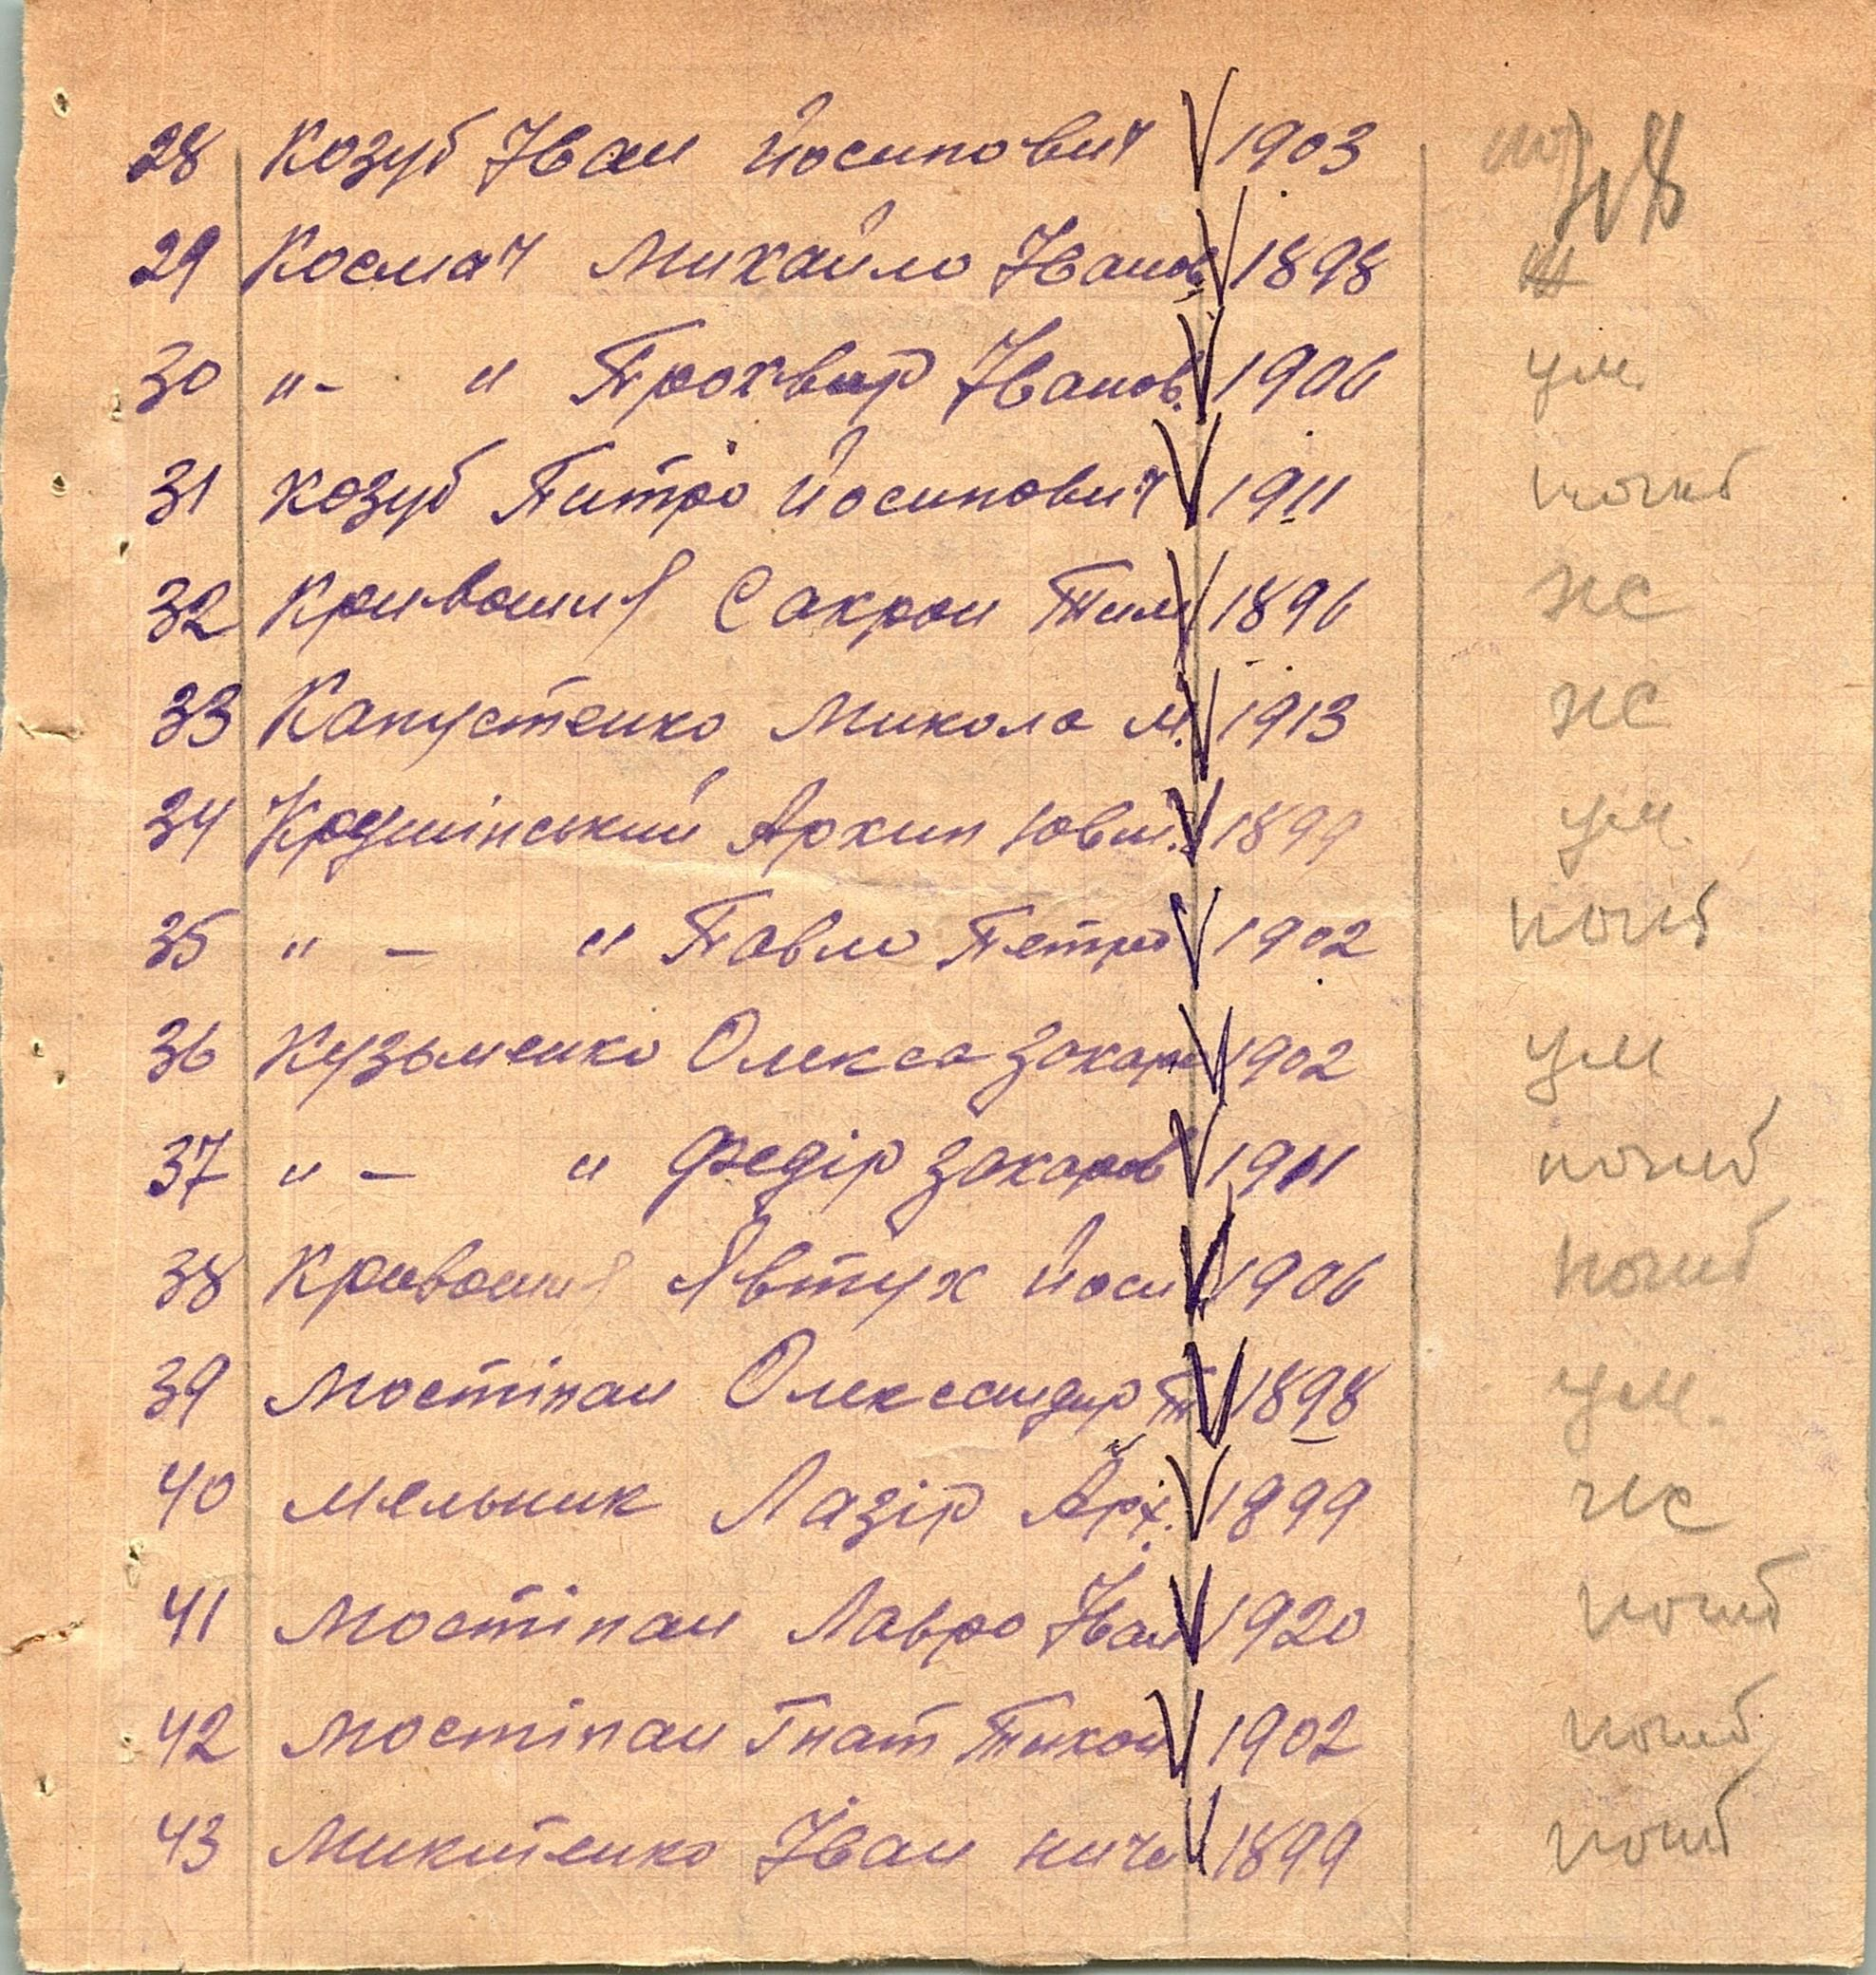 28 Козуб Іван Йосипович V 1903
29 Космач Михайло Іванов V 1898
30 "- " Прохвир Іванов. V 1906 ум.
31 Козуб Питро Йосипович V 1911 погиб
32 Кривошия Сакрон Тим V 1896 жс
33 Капустенко Микола М. V 1913 жс
34 Крушінський Архип Юви. V 1899 ум.
35 " - " Павло Петро V 1902 погиб
36 Кузьменко Олекса Захар V 1902 ум
37 " - " Федір Захаров V 1911 погиб
38 Кривошия Явтух Йоси V 1906 погиб
39 Мостіпан Олександир V 1898 ум.
40 Мельник Лазір Арх. V 1899 жс
41 Мостіпан Лавро Іван V 1920 погиб
42 Мостіпан Гнат Тихон V 1902 погиб
43 Микитенко Іван ничи V 1899 погиб